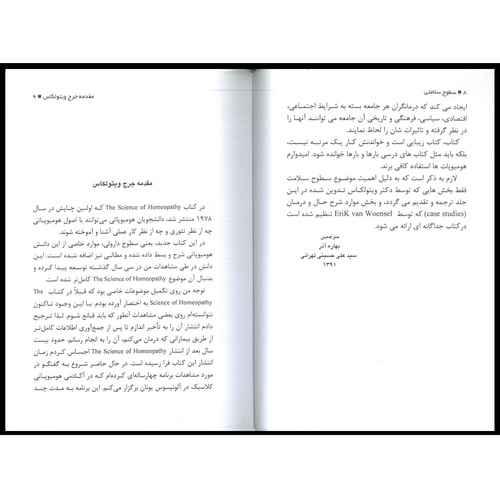 ۸ ■ سطوح سلامتی
ایجاد می کند که درمانگران هر جامعه بسته به شرایط اجتماعی،
اقتصادی، سیاسی، فرهنگی و تاریخی آن جامعه می توانند آنها را
در نظر گرفته و تاثیرات شان را لحاظ نمایند.
کتاب، کتاب زیبایی است و خواندنش کار یک مرتبه نیست،
بلکه باید مثل کتاب های درسی بارها و بارها خوانده شود. امیدوارم
لازم به ذکر است که به دلیل اهمیت موضوع سطوح سلامت
فقط بخش هایی که توسط دکتر ویتولکاس تدوین شده در این
کتاب ترجمه و تقدیم می گردد، و بخش موارد شرح حال و درمان
(case studies) که توسط EriK van Woensel تنظیم شده است
درکتاب جداگانه ای ارائه می شود.
مترجمین
بهاره آذر
سید علی حسینی تهرانی
۱۳۹۱
مقدمه جرج ویتولکاس ■ ۹
مقدمه جرج ویتولکاس
در کتاب The Science of Homeopathy که اولین چاپش در سال
۱۹۷۸ منتشر شد، دانشجویان هومیوپاتی می‌توانند با اصول هومیوپاتی
چه از نظر تئوری و چه از نظر کار عملی آشنا و آموخته شوند.
در این کتاب جدید، یعنی سطوح داروئی، موارد خاصی از این دانش
هومیوپاتی شرح و بسط داده شده و مطالبی نیز اضافه شده است. این
دانش در طی مشاهدات من در سی سال گذشته توسعه پیدا کرده و
بدنبال آن موضوع The Science of Homeopathy کامل‌تر شده است.
توجه من روی تکمیل موضوعات خاصی بود که قبلاً در کتاب The
Science of Homeopathy به اختصار آورده بودم. با این وجود تاکنون
نتوانسته‌ام روی بعضی مشاهدات آنطور که باید قانع شوم. لذا ترجیح
دادم انتشار آن را به تأخیر اندازم تا پس از جمع‌آوری اطلاعات کامل‌تر
از طریق بیمارانی که درمان می‌کنم، آن را به انجام رسانم. حدود بیست
سال بعد از انتشار The Science of Homeopathy احساس کردم زمان
انتشار این کتاب فرا رسیده است. در حال حاضر شروع به گفتگو در
مورد مشاهدات برنامه چهارساله‌ای کرده‌ام که در آکادمی هومیوپاتی
کلاسیک در آلونیسوس یونان برگزار می‌کنم. این برنامه به مدت چند